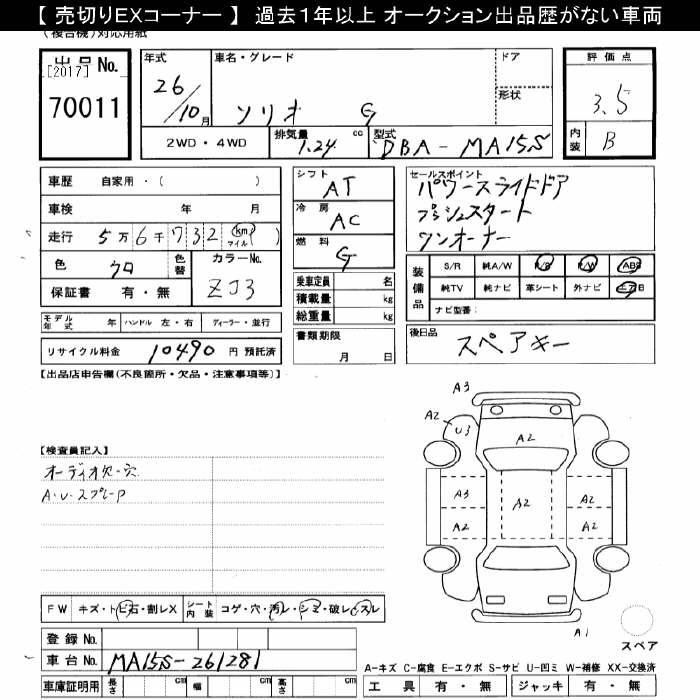 【 売切りEXコーナー 】 過去１年以上 オークション出品歴がない車両
(複合機)対応用紙
出品 No.
[2017]
70011
年式
26/10月
車名・グレード
ソリオ G
ドア
形状
評価点
3.5
内装 B
2WD・4WD
排気量 1.24 cc
型式 DBA-MA15S
車歴 自家用・( )
車検 年 月
走行 5万6千732 (km マイル)
色 クロ 色替
カラーNo. ZJ3
保証書 有・無
モデル年式 年 ハンドル 左・右 ディーラー・並行
リサイクル料金 10490 円 預託済
シフト AT
冷房 AC
燃料 G
乗車定員 名
積載量 kg
総重量 kg
書類期限
月 日
セールスポイント
パワースライドドア
プッシュスタート
ワンオーナー
装備品
S/R 純A/W P/S P/W ABS
純TV 純ナビ 革シート 外ナビ エアB
ナビ型番:
後日品
スペアキー
【出品店申告欄(不良箇所・欠品・注意事項等)】
【検査員記入】
オーディオ欠-穴
A・U・スプレーP
A3
A2
U3
A2
A3
A2
A2
A2
A2
A1
スペア
FW キズ・トビ石・割レX
シート内装 コゲ・穴・汚レ・シミ・破レ・スレ
登録 No.
車台 No. MA15S-261281
車庫証明用 長さ cm 幅 cm 高さ cm
A-キズ C-腐食 E-エクボ S-サビ U-凹ミ W-補修 XX-交換済
工具 有・無 ジャッキ 有・無